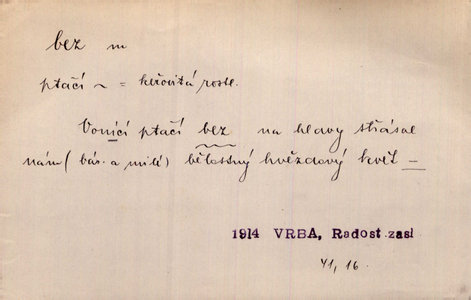 bez m
ptačí ~ = keřovitá rostl.
Vonící ptačí bez na hlavy střásal
nám (bás. a milé) bělostný hvězdový květ —
1914 VRBA, Radost zasl
41, 16.